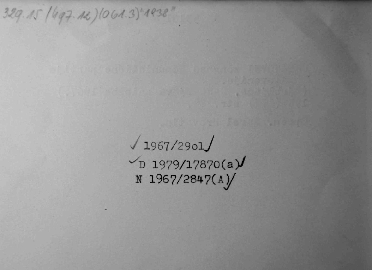 329.15 (497.12)(061.3)"1938"
✓ 1967/2901 ✓
✓ D 1979/17870(a) ✓
N 1967/2847(A) ✓